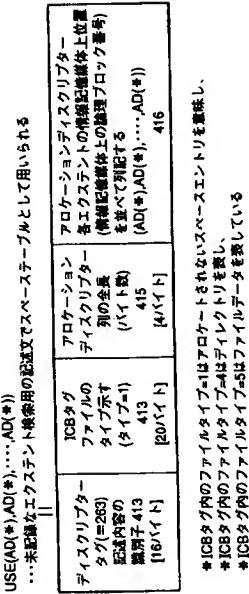 USE(AD(*),AD(*),‥‥,AD(*))
‥‥未記録なエクステント検索用の記述文でスペーステーブルとして用いられる
ディスクリプター
タグ(=263)
記述内容の
識別子 413
[16バイト]
ICBタグ
ファイルの
タイプ示す
(タイプ=1)
413
[20バイト]
アロケーション
ディスクリプター
列の全長
(バイト数)
415
[4バイト]
アロケーションディスクリプター
各エクステントの情報記憶媒体上位置
(情報記憶媒体上の論理ブロック番号)
を並べて列記する
(AD(*),AD(*),‥‥,AD(*))
416
*ICBタグ内のファイルタイプ=1はアロケートされないスペースエントリを意味し、
*ICBタグ内のファイルタイプ=4はディレクトリを表し、
*ICBタグ内のファイルタイプ=5はファイルデータを表している